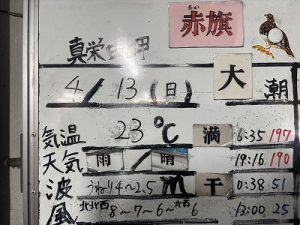 赤旗
真栄田岬
4/13(日) 大潮
気温 23℃ 満 6:35 197
天気 雨/晴 19:16 190
波 うねり4~2.5m 干 0:38 51
風 北北西8~7~6~北西6 13:00 25